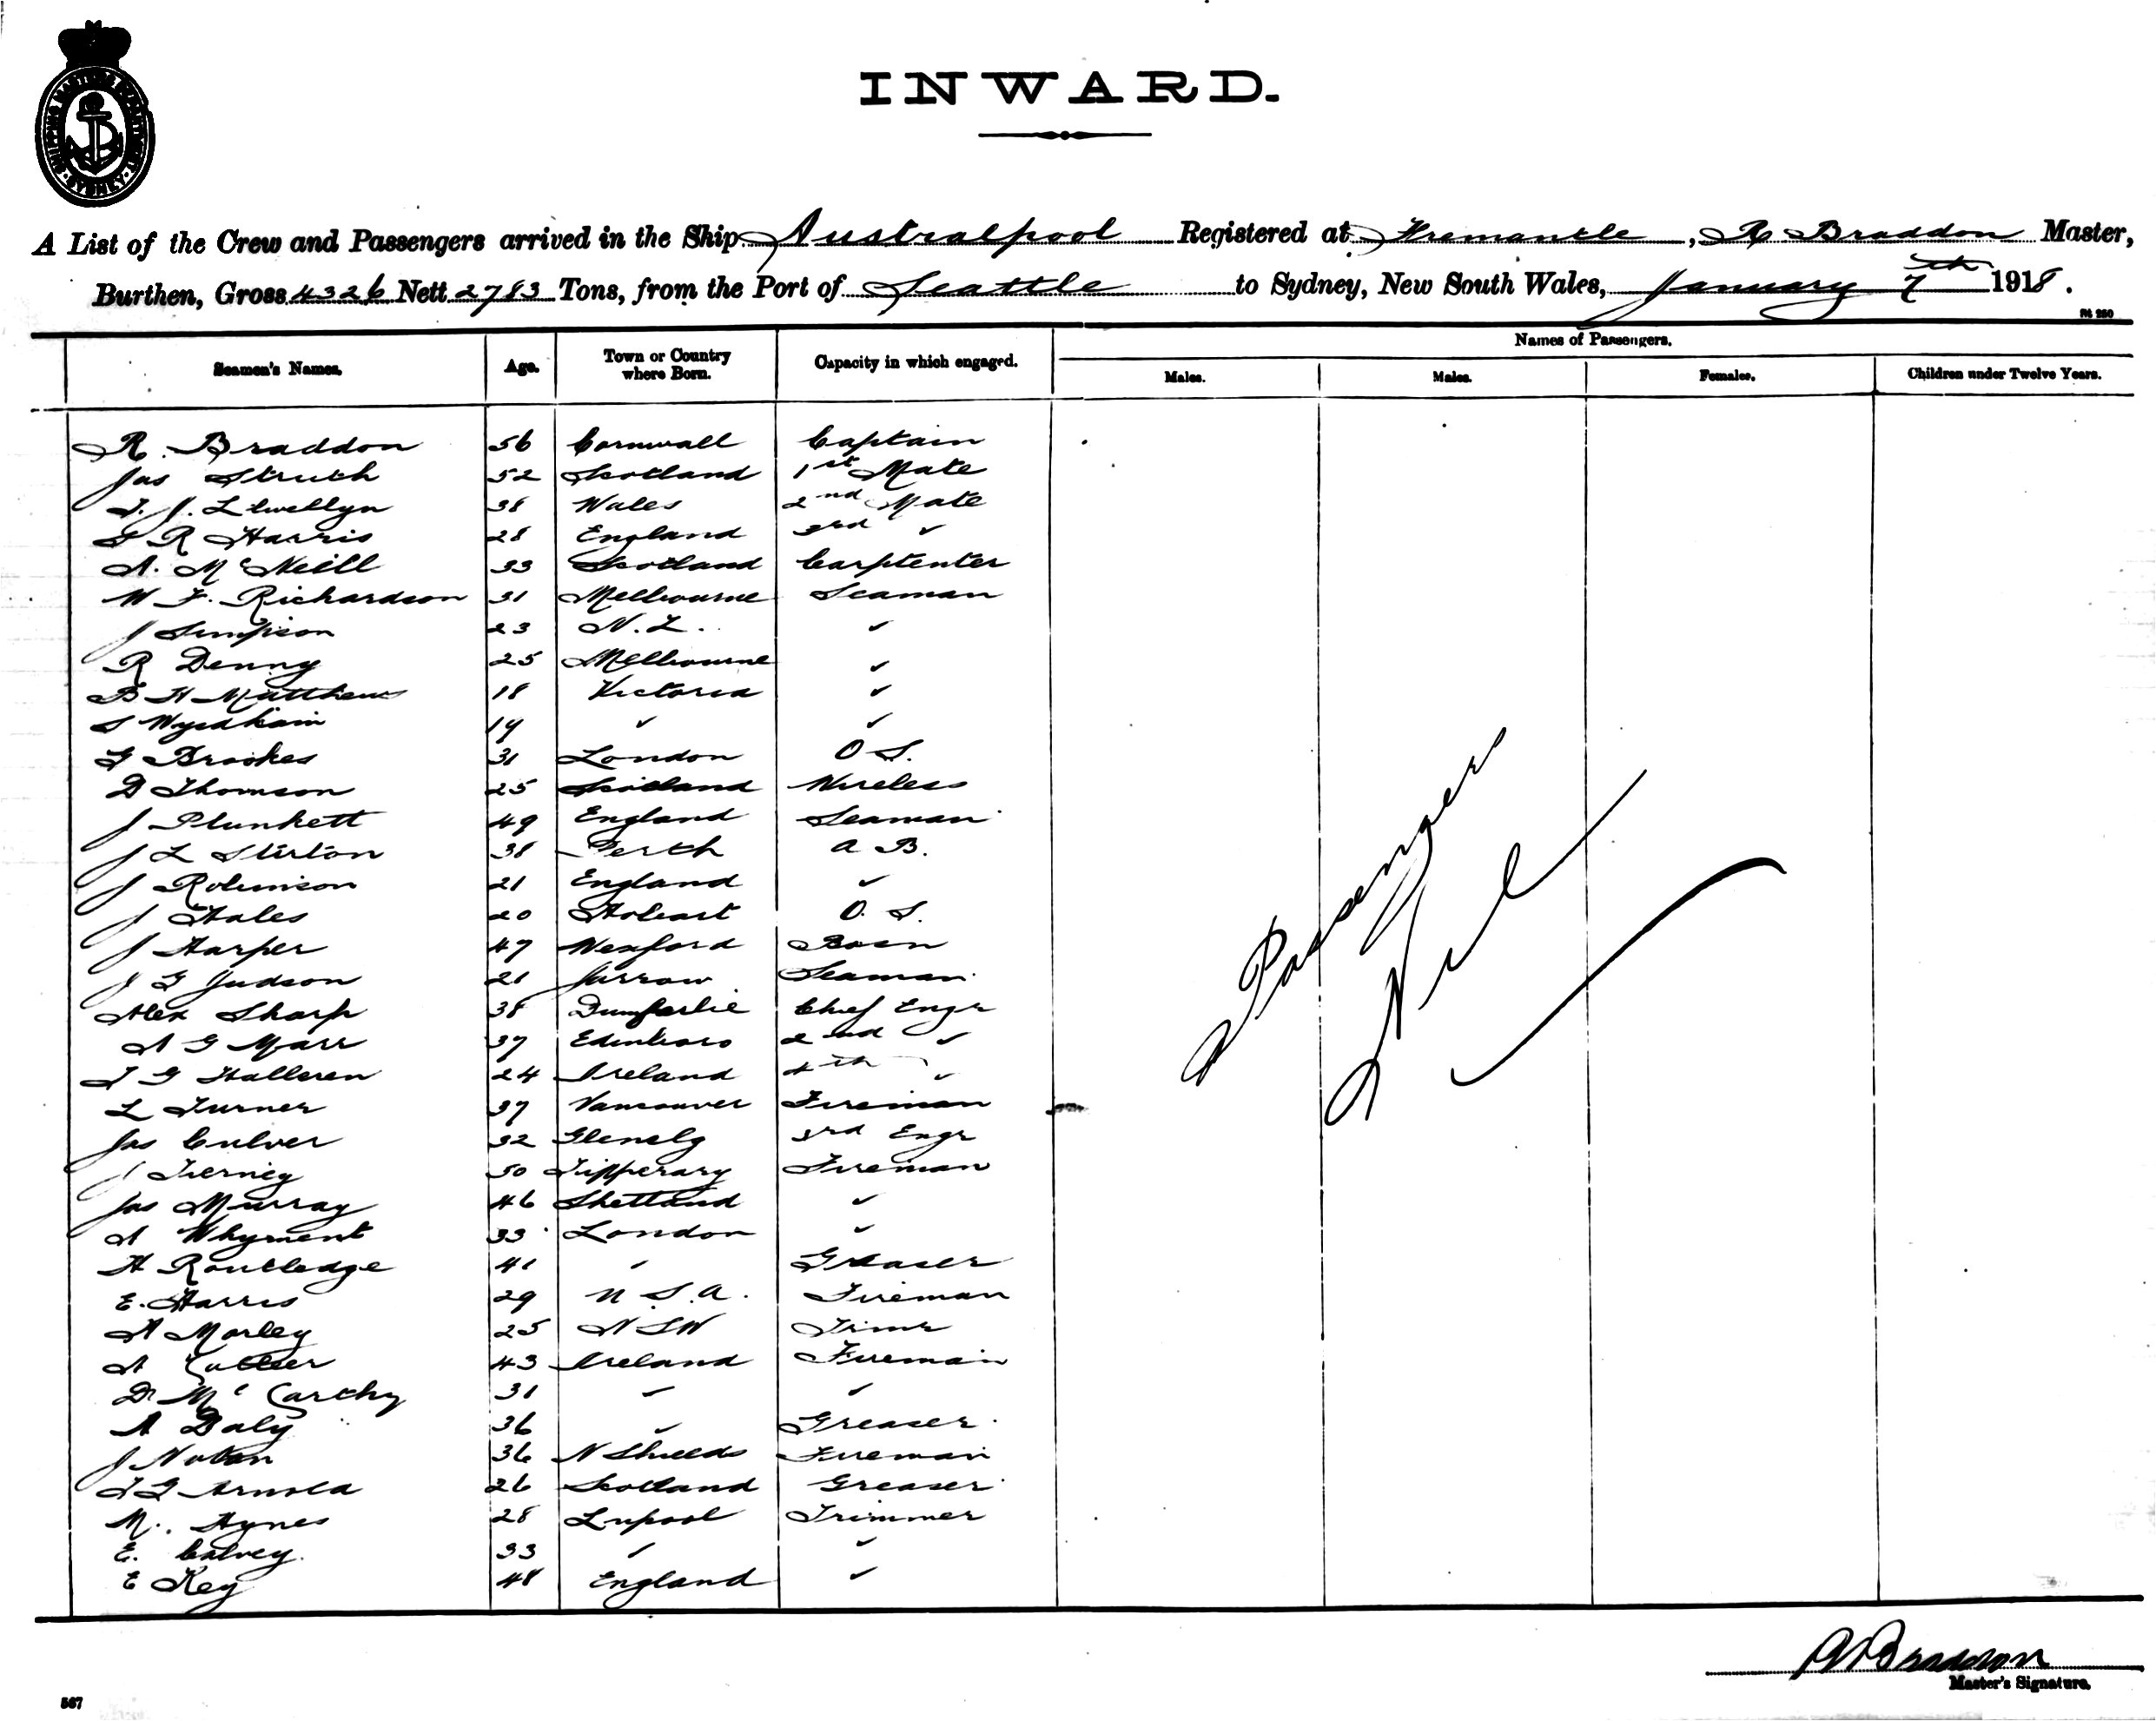 SHIPPING MASTERS DEPARTMENT SYDNEY
INWARD.
A List of the Crew and Passengers arrived in the Ship Australpool Registered at Fremantle, R Braddon Master,
Burthen, Gross 4326 Nett 2783 Tons, from the Port of Seattle to Sydney, New South Wales, January 7th 1918.
Seamen's Names. Age. Town or Country where Born. Capacity in which engaged. Names of Passengers.
Males. Males. Females. Children under Twelve Years.
R. Braddon 56 Cornwall Captain
Jas Struth 52 Scotland 1st Mate
T. J. Llwellyn 38 Wales 2nd Mate
R Harris 28 England 3rd "
A. McNeill 33 Scotland Carptenter
W F. Richardson 31 Melbourne Seaman
J Simpson 23 N.Z. "
R Denny 25 Melbourne "
B H Matthews 18 Victoria "
S Wyndham 19 " "
G Brookes 31 London O S.
D Thomson 25 Scotland Wireless
J Plunkett 49 England Seaman
J L Stirton 38 Perth A B.
J Robinson 21 England "
J Hales 20 Hobart O. S.
J Harper 47 Wexford Bosn
J G Judson 21 Jarrow Seaman
Alex Sharp 38 Dumferlie Chief Engr
A G Marr 37 Edinboro 2nd "
T G Halleren 24 Ireland 4th "
L Turner 37 Vancouver Fireman
Jas Culver 32 Glenelg 3rd Engr
J Tierney 50 Tipperary Fireman
Jas Murray 46 Shetland "
A Whyment 33 London "
H Routledge 41 " Greaser
E. Harris 29 U.S.A. Fireman
A Morley 25 NSW Trimr
A 43 Ireland Fireman
D. McCarthy 31 " "
A Daly 36 " Greaser
J Nolan 36 N Shields Fireman
Arnold 26 Scotland Greaser
M. Hynes 28 Lvpool Trimmer
E. Calvey 33 " "
E Key 48 England "
Passengers
Nil
R Braddon
Master's Signature.
567